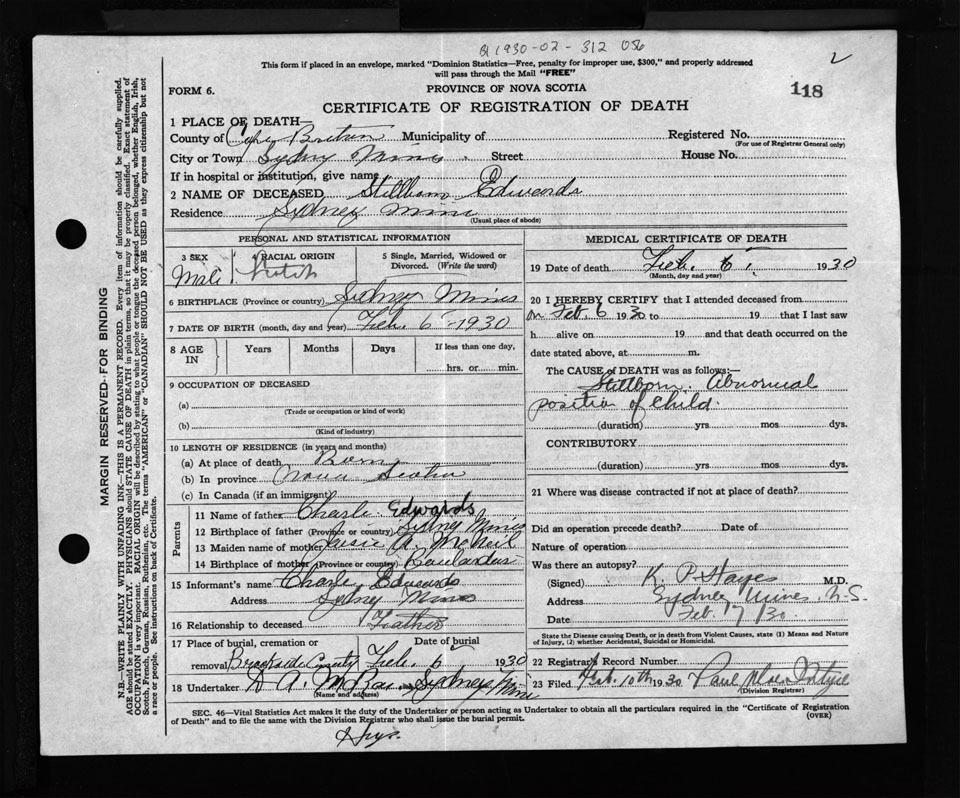 1930-02-312 056
2
This form if placed in an envelope, marked "Dominion Statistics—Free, penalty for improper use, $300," and properly addressed
will pass through the Mail "FREE"
FORM 6. PROVINCE OF NOVA SCOTIA 118
CERTIFICATE OF REGISTRATION OF DEATH
1 PLACE OF DEATH—
County of Cape Breton Municipality of Registered No.
(For use of Registrar General only)
City or Town Sydney Mines. Street House No.
If in hospital or institution, give name
2 NAME OF DECEASED Stillborn Edwards
Residence Sydney Mines
(Usual place of abode)
PERSONAL AND STATISTICAL INFORMATION
3 SEX 4 RACIAL ORIGIN 5 Single, Married, Widowed or
Divorced. (Write the word)
Male
6 BIRTHPLACE (Province or country) Sydney Mines
7 DATE OF BIRTH (month, day and year) Feb. 6 - 1930
8 AGE IN Years Months Days If less than one day,
hrs. or min.
9 OCCUPATION OF DECEASED
(a)
(Trade or occupation or kind of work)
(b)
(Kind of industry)
10 LENGTH OF RESIDENCE (in years and months)
(a) At place of death Born
(b) In province Nova Scotia
(c) In Canada (if an immigrant)
Parents
11 Name of father Charle Edwards
12 Birthplace of father (Province or country) Sydney Mines
13 Maiden name of mother A. McNeil
14 Birthplace of mother (Province or country)
15 Informant's name Charle Edwards
Address Sydney Mines
16 Relationship to deceased Father
17 Place of burial, cremation or Date of burial
removal Brookside Feb. 1930
18 Undertaker D A. McRae Sydney Mines
(Name and address)
MEDICAL CERTIFICATE OF DEATH
19 Date of death Feb. 6. 1930
(Month, day and year)
20 I HEREBY CERTIFY that I attended deceased from
on Feb. 6 1930 to 19 that I last saw
h alive on 19 and that death occurred on
date stated above, at m.
The CAUSE of DEATH was as follows:—
Stillborn. Abnormal
position of child.
(duration) yrs mos dys.
CONTRIBUTORY
(duration) yrs mos dys.
21 Where was disease contracted if not at place of death?
Did an operation precede death? Date of
Nature of operation
Was there an autopsy?
(Signed) K. P. Hayes M.D.
Address Sydney Mines, N.S.
Date Feb 17/30.
State the Disease causing Death, or in death from Violent Causes, state (1) Means and Nature
of Injury, (2) whether Accidental, Suicidal or Homicidal.
22 Registrar's Record Number
23 Filed Feb. 10th 1930 Paul MacIntyre
(Division Registrar)
SEC. 46—Vital Statistics Act makes it the duty of the Undertaker or person acting as Undertaker to obtain all the particulars required in the "Certificate of Registration
of Death" and to file the same with the Division Registrar who shall issue the burial permit. (OVER)
MARGIN RESERVED FOR BINDING
N.B.—WRITE PLAINLY WITH UNFADING INK—THIS IS A PERMANENT RECORD. Every item of information should be carefully supplied.
AGE should be stated EXACTLY. PHYSICIANS should STATE CAUSE OF DEATH in plain terms, so that it may be properly classified. Exact statement of
OCCUPATION is very important. RACIAL ORIGIN will be described by stating to what people or tongue the deceased person belonged, whether English, Irish,
Scotch, French, German, Russian, Ruthenian, etc. The terms "AMERICAN" or "CANADIAN" SHOULD NOT BE USED as they express citizenship but not
a race or people. See instructions on back of Certificate.